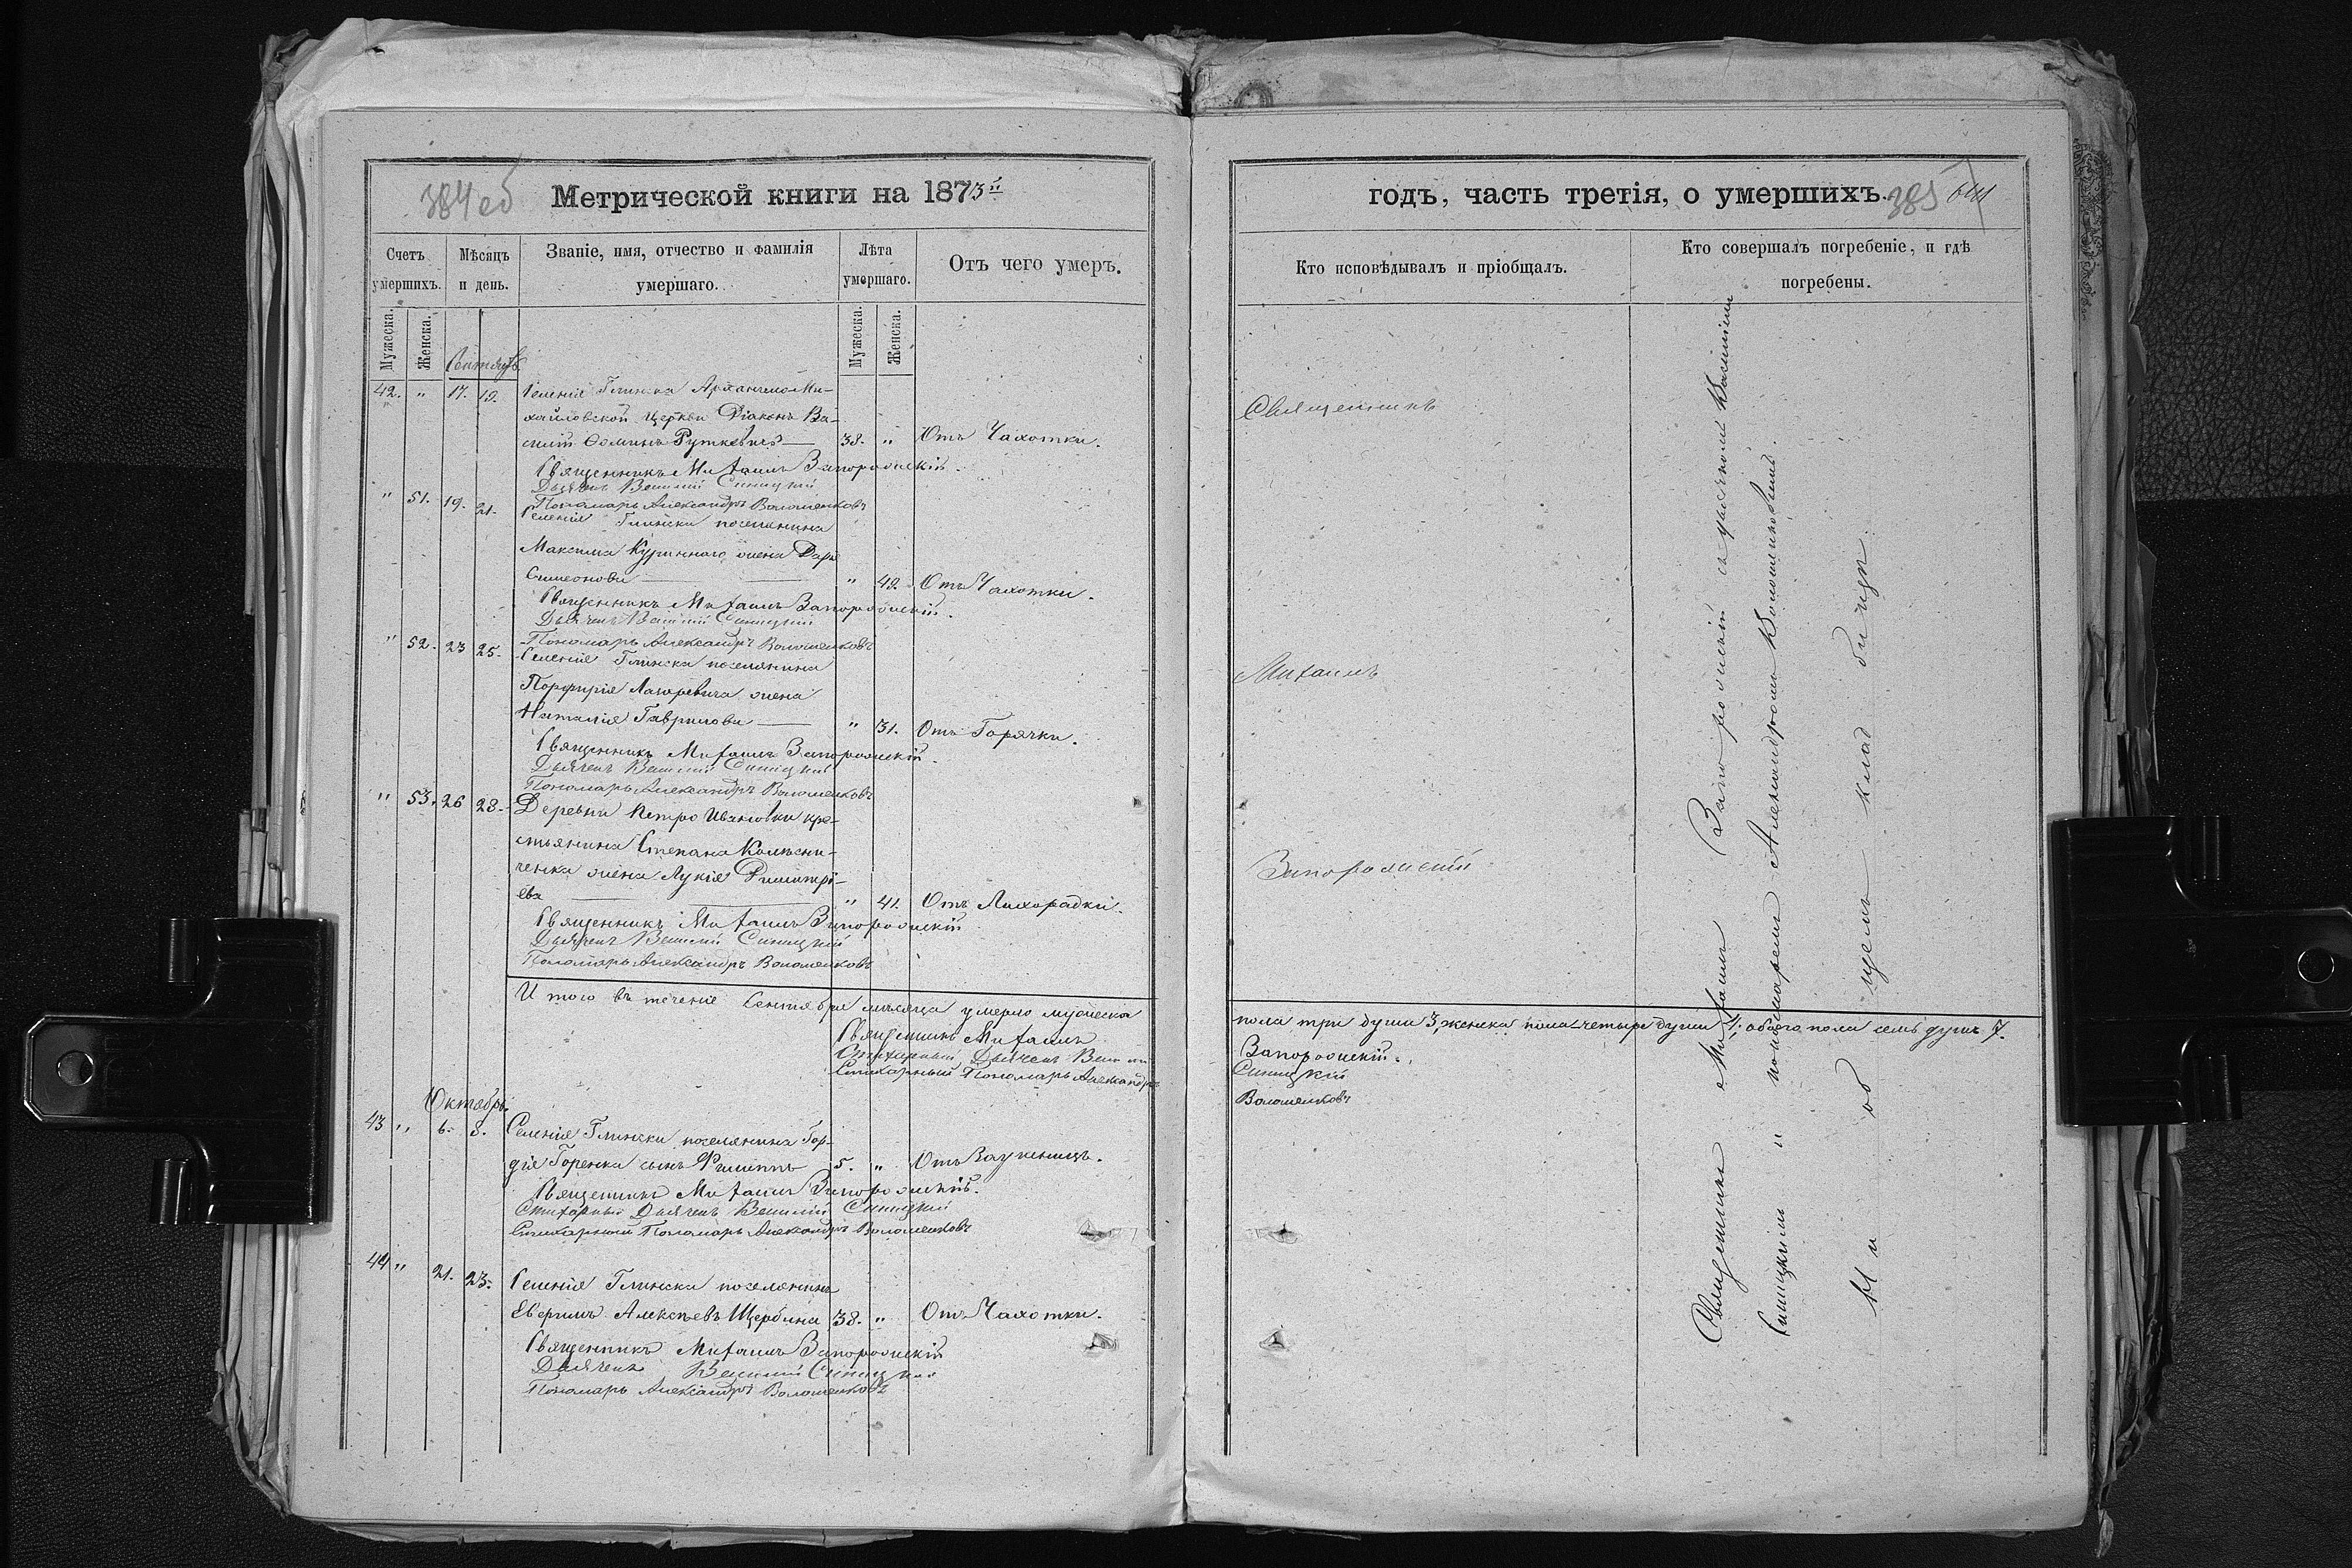 384 об
Метрической книги на 1873й
Счетъ умершихъ.
Мѣсяцъ и день.
Званіе, имя, отчество и фамилія умершаго.
Лѣта умершаго.
Отъ чего умеръ.
Мужеска.
Женска.
Мужеска.
Женска.
Сентябрь
42. " 17. 19. Селенія Глинска Архангело-Ми-
хайловской церкви Діаконъ Ва-
силій Ѳоминъ Руткевичъ 38. " Отъ Чахотки.
Священникъ Михаилъ Запорожскій.
Дьячекъ Василій Синицкій
Пономарь Александръ Воломенковъ
" 51. 19. 21. Селенія Глинска поселянина
Максима Куринного жена Дарья
Симеонова " 42. Отъ Чахотки.
Священникъ Михаилъ Запорожскій.
Дьячекъ Василій Синицкій
Пономарь Александръ Воломенковъ
" 52. 23 25. Селенія Глинска поселянина
Порфирія Лазоревича жена
Наталія Гаврилова " 31. Отъ Горячки.
Священникъ Михаилъ Запорожскій.
Дьячекъ Василій Синицкій
Пономарь Александръ Воломенковъ
" 53. 26 28. Деревни Петро Ивановки кре-
стьянина Степана Колѣсни-
ченка жена Лукія Димитрі-
ева " 41. Отъ Лихорадки.
Священникъ Михаилъ Запорожскій
Дьячекъ Василій Синицкій
Пономарь Александръ Воломенковъ
Итого въ теченіе Сентября мѣсяца умерло мужеска
Священникъ Михаилъ
Стихарный Дьячекъ Василій
Стихарный Пономарь Александръ
Октябрь.
43 " 6. 8. Селенія Глинска поселянина Гор-
дія Горенка сынъ Филиппъ 5. " Отъ Заушницъ.
Священникъ Михаилъ Запорожскій.
Стихарный Дьячекъ Василій Синицкій
Стихарный Пономарь Александръ Воломенковъ
44 " 21. 23. Селенія Глинска поселянинъ
Аверкій Алексѣевъ Щербина 38. " Отъ Чахотки.
Священникъ Михаилъ Запорожскій
Дьячекъ Василій Синицкій
Пономарь Александръ Воломенковъ
годъ, часть третія, о умершихъ.
385
Кто исповѣдывалъ и пріобщалъ.
Кто совершалъ погребеніе, и гдѣ погребены.
Священникъ
Михаилъ
Запорожскій
пола три души 3, женска пола четыре души 4; обоего пола семь душъ 7.
Запорожскій.
Синицкій
Воломенковъ
Священникъ Михаилъ Запорожскій съ Василіемъ
Синицкимъ и пономаремъ Александромъ Воломенковымъ.
На общемъ кладбищѣ